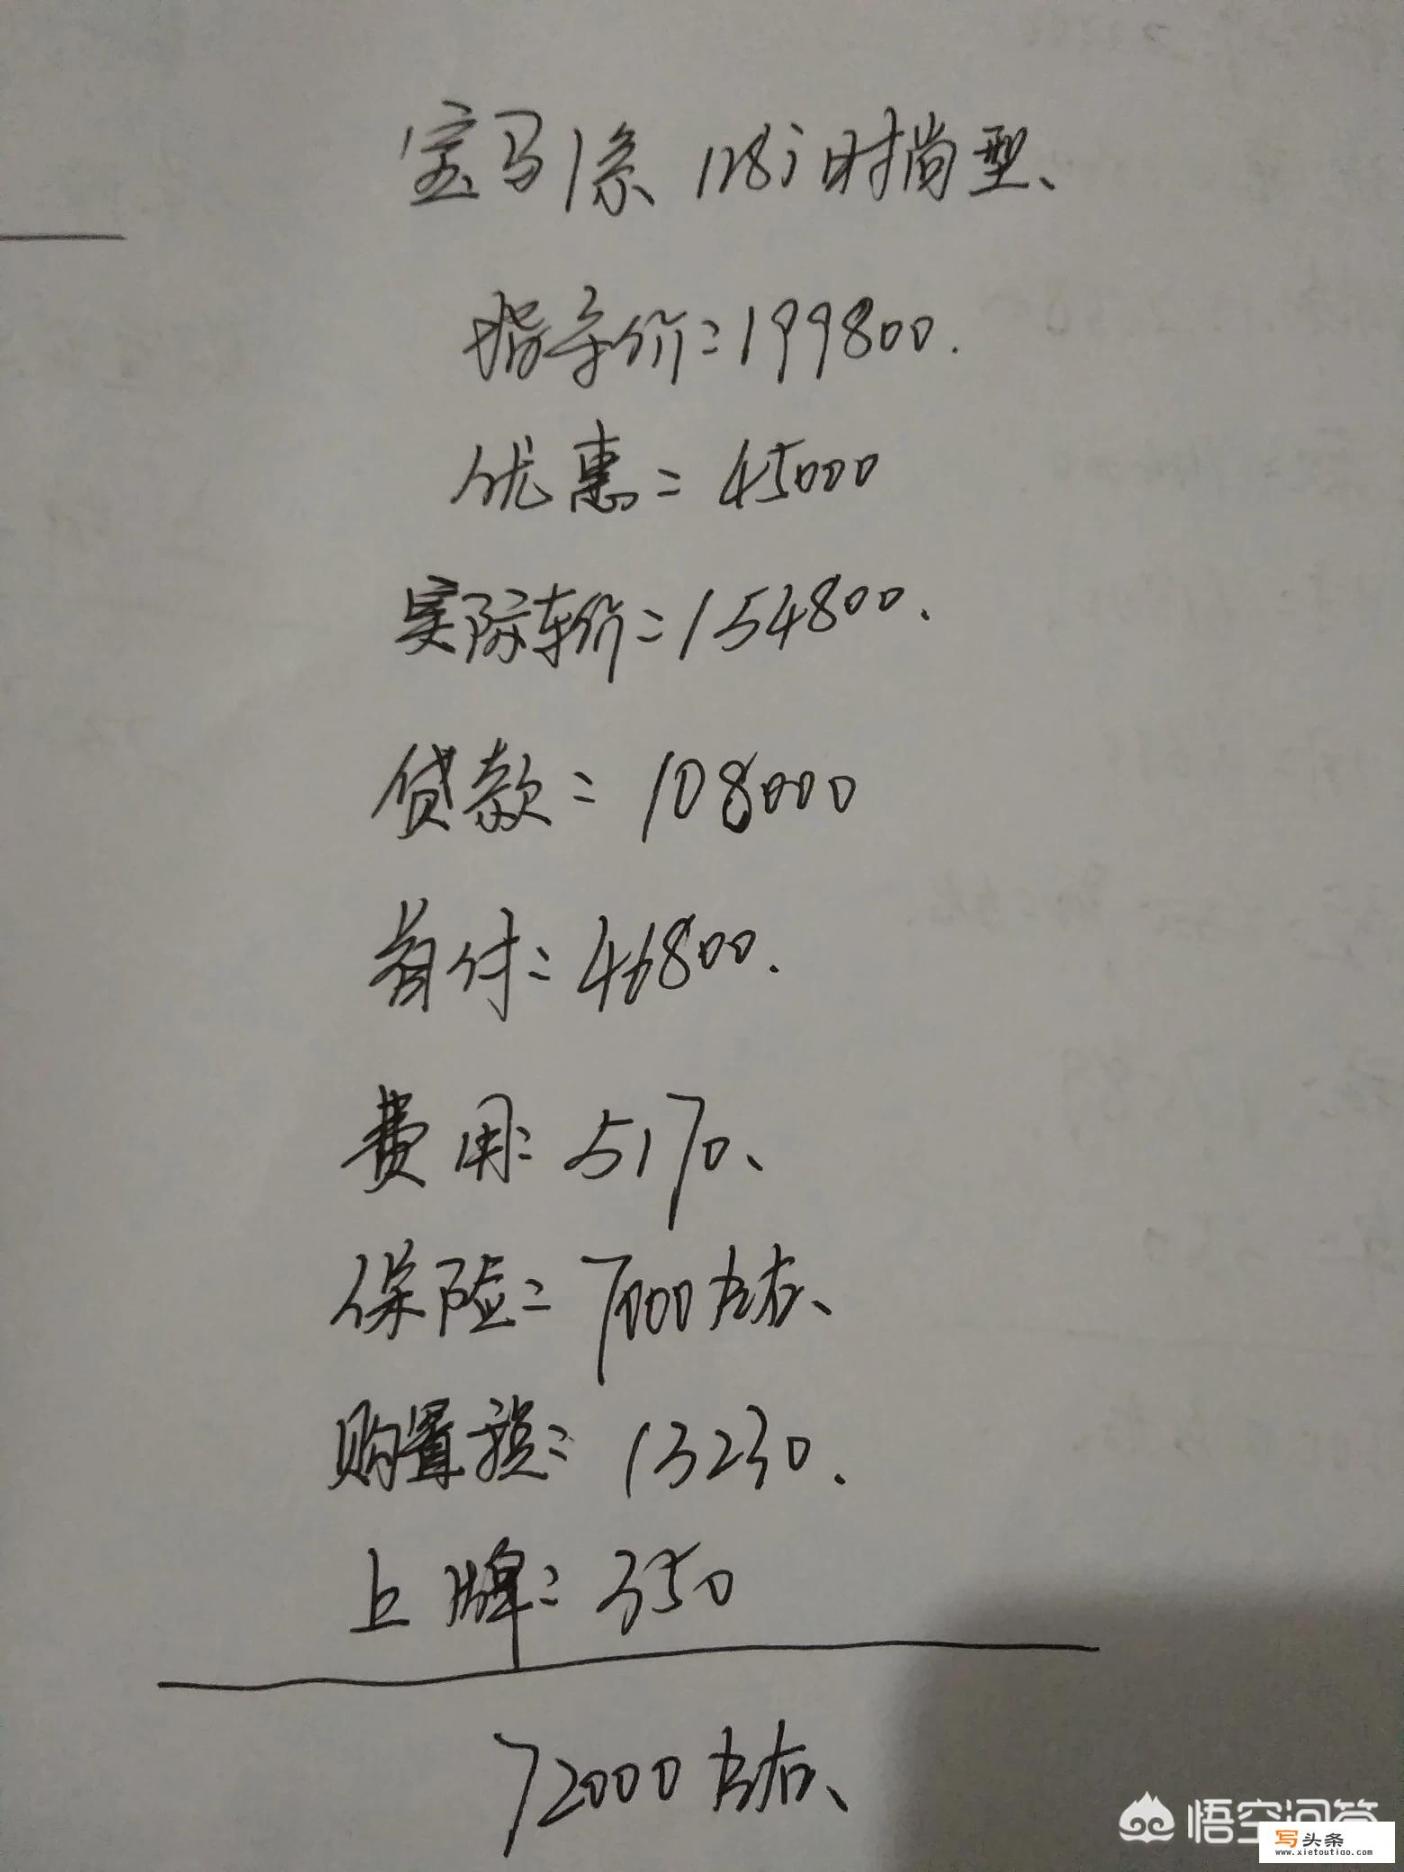 宝马1系 118i时尚型、
指导价=199800.
优惠=45000
实际车价=154800.
贷款=108000
首付=46800.
费用=5170、
保险=7000左右、
购置税=13230.
上牌=350
72000左右、
悟空问答
写头条
www.xietoutiao.com